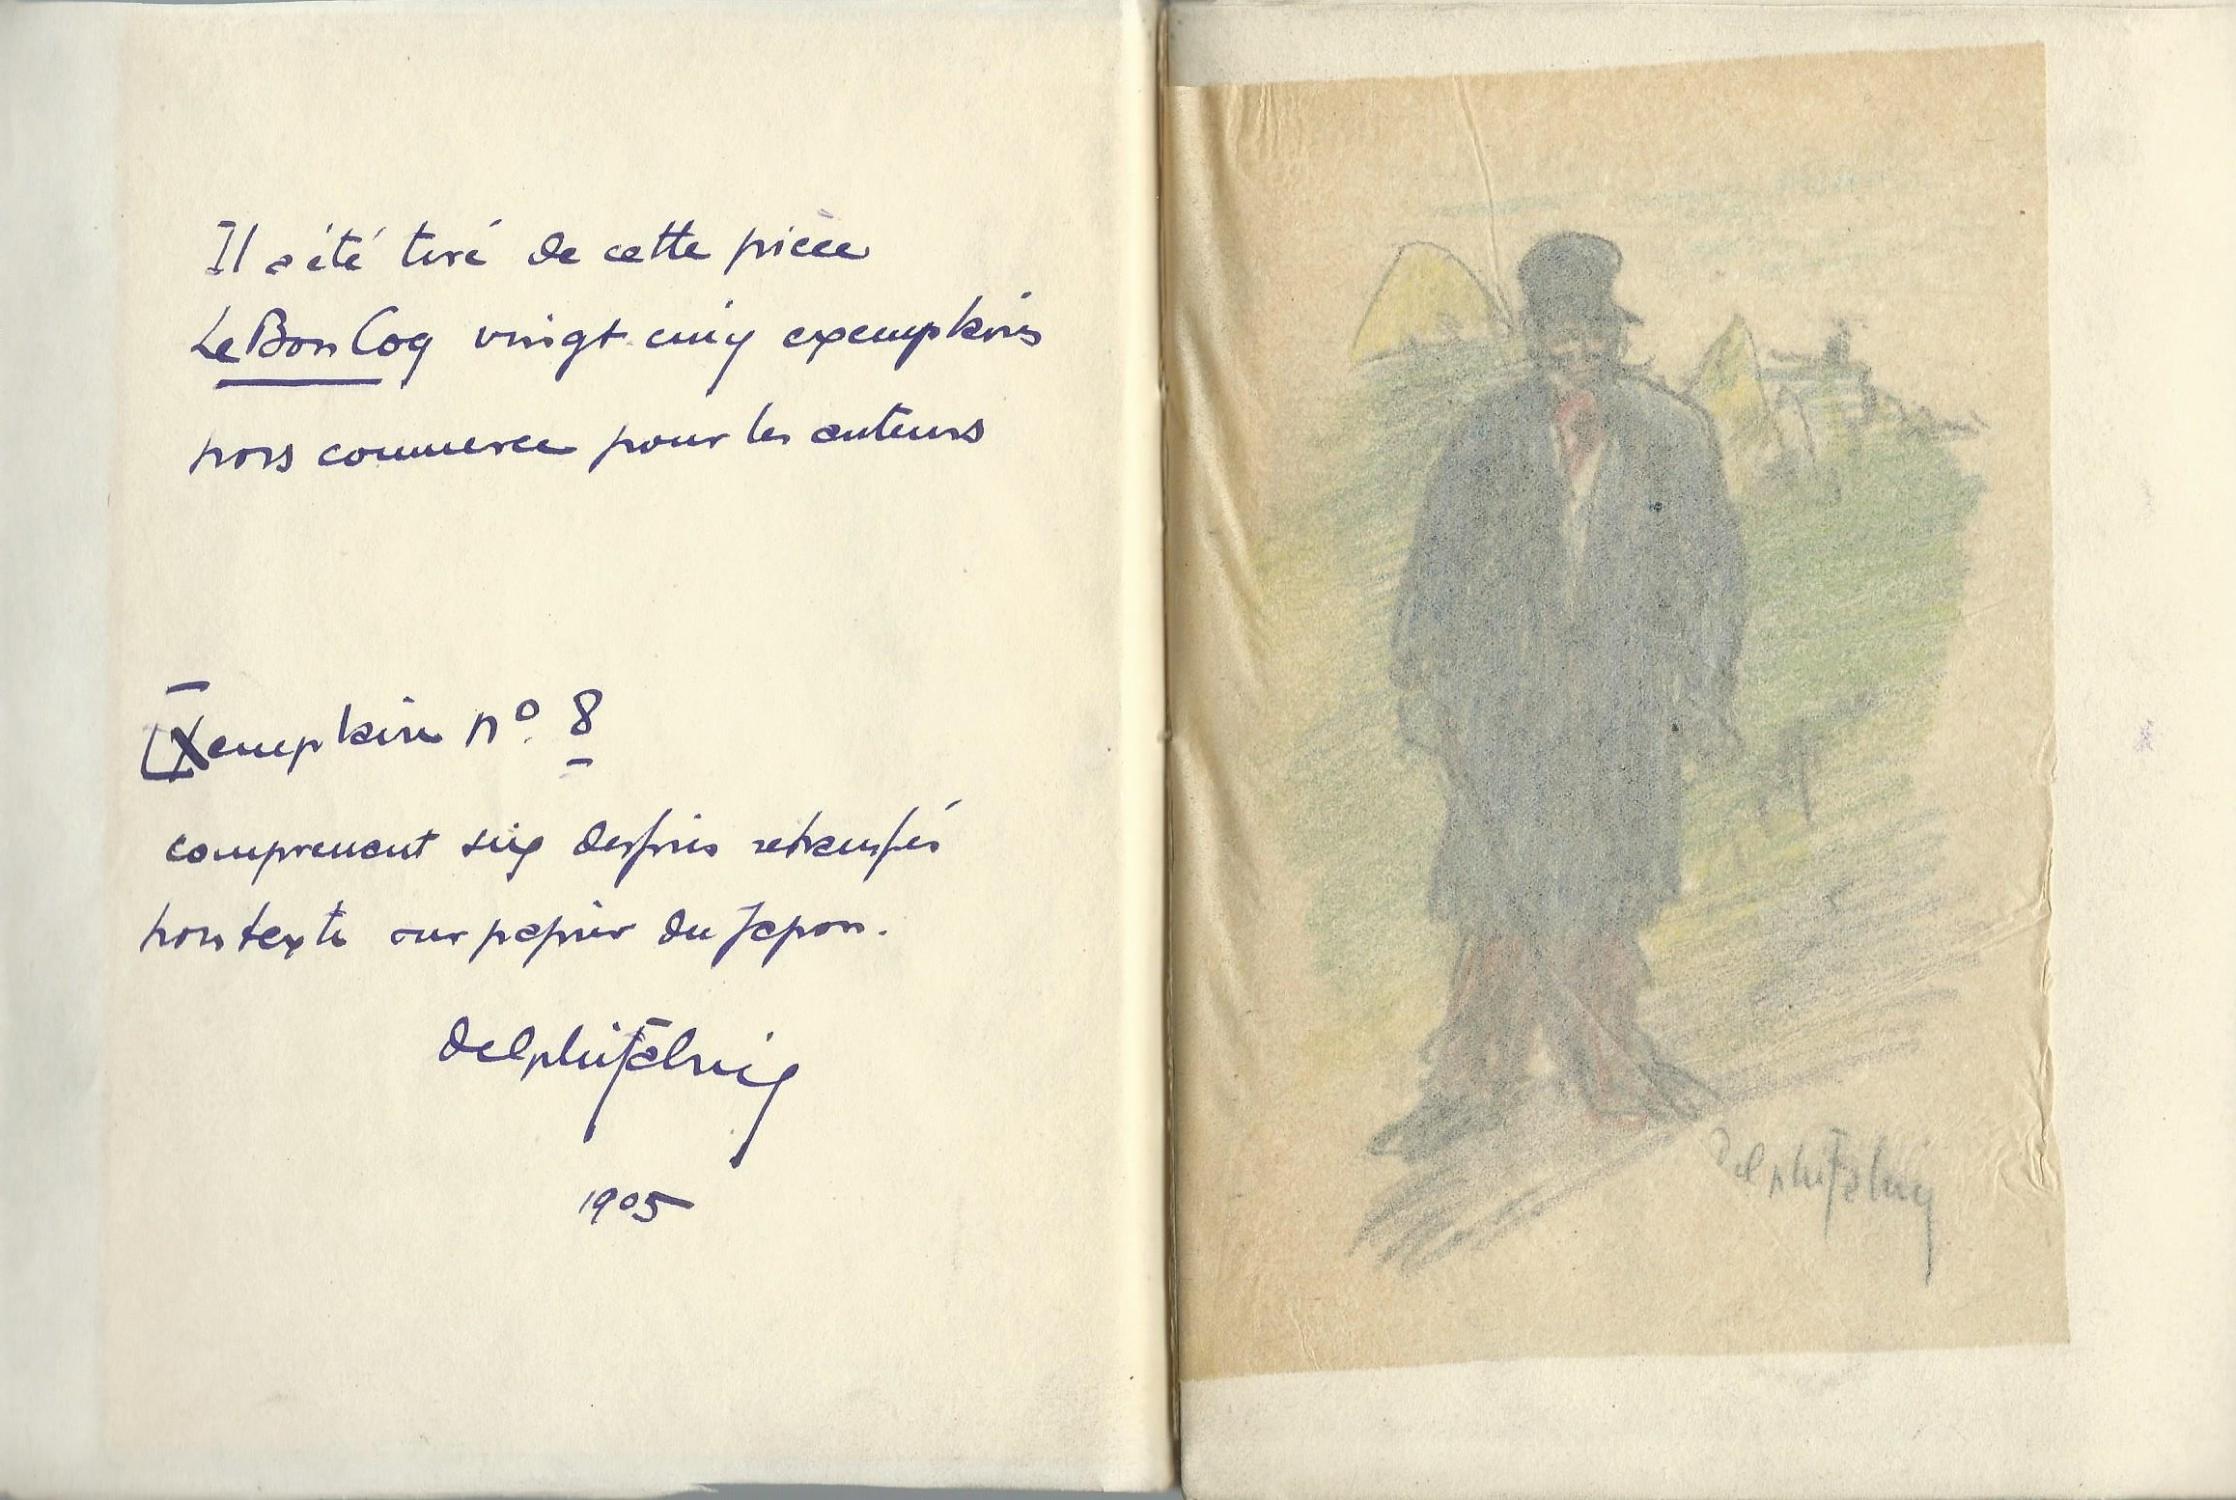 Il a été tiré de cette pièce
Le Bon Coq vingt cinq exemplaires
hors commerce pour les auteurs
Exemplaire nº 8
comprenant six dessins rehaussés
hors texte sur papier du Japon.
Delphi Fabrice
1905
Delphi Fabrice